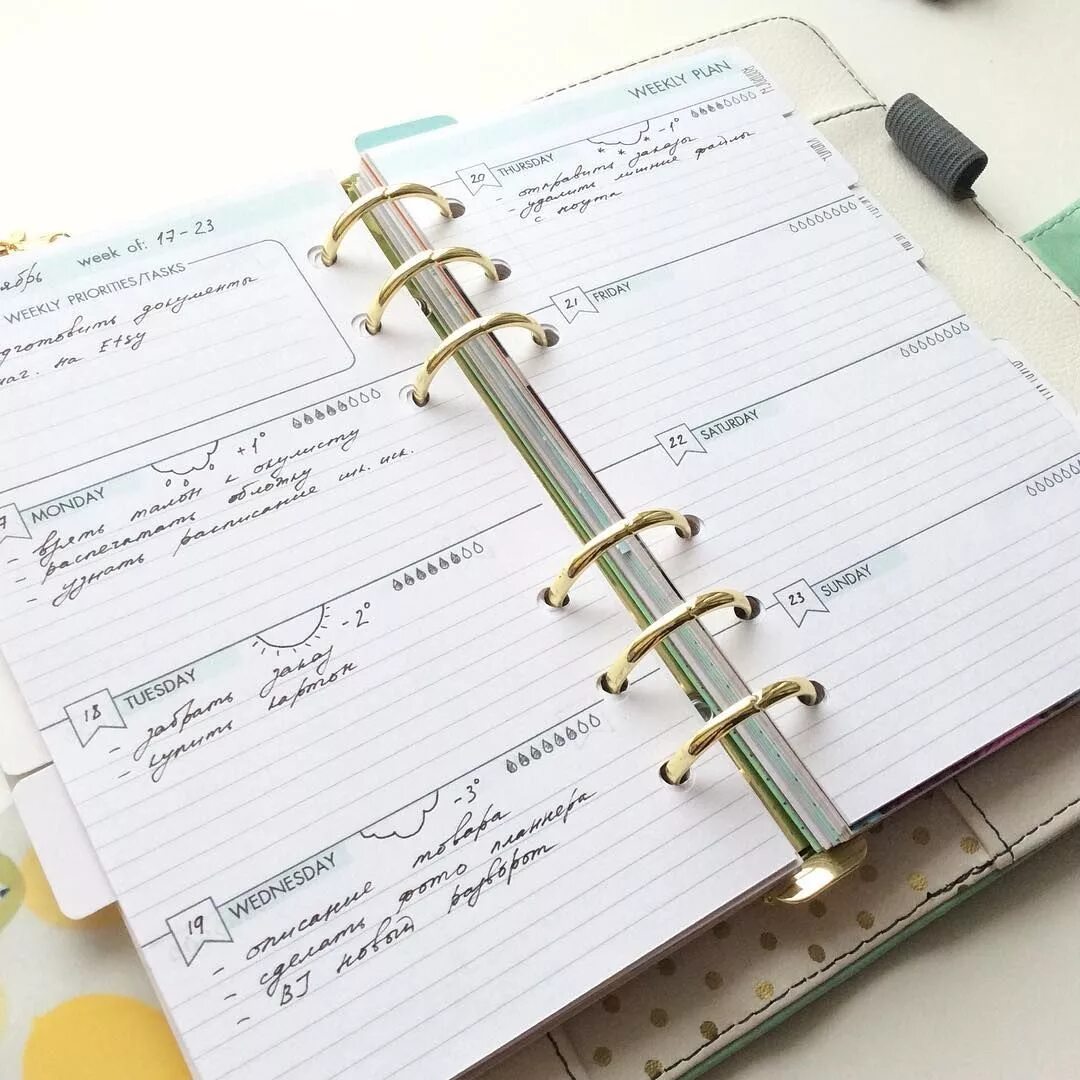 ябрь week of: 17-23
WEEKLY PRIORITIES/TASKS
дготовить документы
на Etsy
7 MONDAY +1°
- взять талон к окулисту
- распечатать обложку
- узнать расписание шк. иск.
18 TUESDAY -2°
- забрать заказ
- купить картон
19 WEDNESDAY -3°
- описание товара
- сделать фото планнера
- BJ новый разворот
WEEKLY PLAN
20 THURSDAY -1°
- отправить заказы
- удалить лишние файлы
с ноута
21 FRIDAY
22 SATURDAY
23 SUNDAY